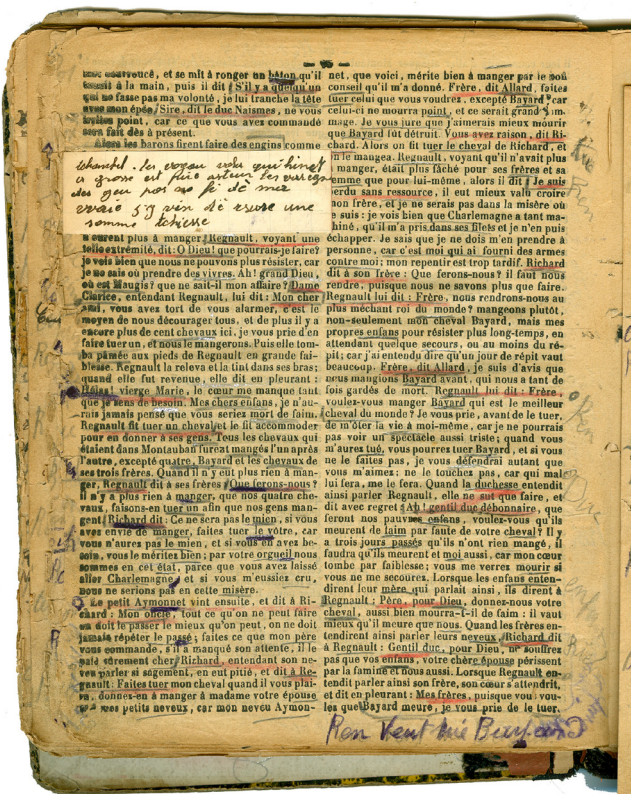 me courroucé, et se mit à ronger un bâton qu'il
tenait à la main, puis il dit : S'il y a quelqu'un
qui ne fasse pas ma volonté, je lui tranche la tête
avec mon épée. Sire, dit le duc Naismes, ne vous
battes point, car ce que vous avez commandé
sera fait dès à présent.
Alors les barons firent faire des engins comme
a grose est
pas
vin dé une
somme
n'eurent plus à manger. Regnault, voyant une
telle extrémité, dit : O Dieu! que pourrais-je faire?
je vois bien que nous ne pouvons plus résister, car
je ne sais où prendre des vivres. Ah! grand Dieu,
où est Maugis? que ne sait-il mon affaire? Dame
Clarice, entendant Regnault, lui dit : Mon cher
ami, vous avez tort de vous alarmer, c'est le
moyen de nous décourager tous, et de plus il y a
encore plus de cent chevaux ici, je vous prie d'en
faire tuer un, et nous le mangerons. Puis elle tom-
ba pâmée aux pieds de Regnault en grande fai-
blesse. Regnault la releva et la tint dans ses bras;
quand elle fut revenue, elle dit en pleurant :
Hélas! vierge Marie, le cœur me manque tant
que je sens de besoin. Mes chers enfans, je n'au-
rais jamais pensé que vous seriez mort de faim.
Regnault fit tuer un cheval et le fit accommoder
pour en donner à ses gens. Tous les chevaux qui
étaient dans Montauban furent mangés l'un après
l'autre, excepté quatre, Bayard et les chevaux de
ses trois frères. Quand il n'y eut plus rien à man-
ger, Regnault dit à ses frères : Que ferons-nous?
il n'y a plus rien à manger, que nos quatre che-
vaux, faisons-en tuer un afin que nos gens man-
gent. Richard dit : Ce ne sera pas le mien, si vous
avez envie de manger, faites tuer le vôtre, car
vous n'aurez pas le mien, et si vous en avez be-
soin, vous le méritez bien; par votre orgueil nous
sommes en cet état, parce que vous avez laissé
aller Charlemagne, et si vous m'eussiez cru,
nous ne serions pas en cette misère.
Le petit Aymonnet vint ensuite, et dit à Ri-
chard : Mon oncle, tout ce qu'on ne peut faire
on doit le passer le mieux qu'on peut, on ne doit
jamais répéter le passé; faites ce que mon père
vous commande, s'il a manqué son attente, il le
paie sûrement cher. Richard, entendant son ne-
veu parler si sagement, en eut pitié, et dit à Re-
gnault : Faites tuer mon cheval quand il vous plai-
ra, donnez-en à manger à madame votre épouse
et à mes petits neveux, car mon neveu Aymon-
net, que voici, mérite bien à manger par le bon
conseil qu'il m'a donné. Frère, dit Allard, faites
tuer celui que vous voudrez, excepté Bayard, car
celui-ci ne mourra point, et ce serait grand dom-
mage. Je vous jure que j'aimerais mieux mourir
que Bayard fût détruit. Vous avez raison, dit Ri-
chard. Alors on fit tuer le cheval de Richard, et
on le mangea. Regnault, voyant qu'il n'avait plus
à manger, était plus fâché pour ses frères et sa
femme que pour lui-même, alors il dit : Je suis
perdu sans ressource, il eut mieux valu croire
mon frère, et je ne serais pas dans la misère où
je suis : je vois bien que Charlemagne a tant ma-
chiné, qu'il m'a pris dans ses filets et je n'en puis
échapper. Je sais que je ne dois m'en prendre à
personne, car c'est moi qui ai fourni des armes
contre moi; mon repentir est trop tardif. Richard
dit à son frère : Que ferons-nous? il faut nous
rendre, puisque nous ne savons plus que faire.
Regnault lui dit : Frère, nous rendrons-nous au
plus méchant roi du monde? mangeons plutôt,
non-seulement mon cheval Bayard, mais mes
propres enfans pour résister plus long-temps, en
attendant quelque secours, ou au moins du ré-
pit; car j'ai entendu dire qu'un jour de répit vaut
beaucoup. Frère, dit Allard, je suis d'avis que
nous mangions Bayard avant, qui nous a tant de
fois gardés de mort. Regnault lui dit : Frère,
voulez-vous manger Bayard qui est le meilleur
cheval du monde? Je vous prie, avant de le tuer,
de m'ôter la vie à moi-même, car je ne pourrais
pas voir un spectacle aussi triste; quand vous
m'aurez tué, vous pourrez tuer Bayard, et si vous
ne le faites pas, je vous défendrai autant que
vous m'aimez : ne le touchez pas, car qui mal
lui fera, me le fera. Quand la duchesse entendit
ainsi parler Regnault, elle ne sut que faire, et
dit avec regret : Ah! gentil duc débonnaire, que
feront nos pauvres enfans, voulez-vous qu'ils
meurent de faim par faute de votre cheval? Il y
a trois jours passés qu'ils n'ont rien mangé, il
faudra qu'ils meurent et moi aussi, car mon cœur
tombe par faiblesse; vous me verrez mourir si
vous ne me secourez. Lorsque les enfans enten-
dirent leur mère qui parlait ainsi, ils dirent à
Regnault : Père, pour Dieu, donnez-nous votre
cheval, aussi bien mourra-t-il de faim : il vaut
mieux qu'il meure que nous. Quand les frères en-
tendirent ainsi parler leurs neveux, Richard dit
à Regnault : Gentil duc, pour Dieu, ne souffrez
pas que vos enfans, votre chère épouse périssent
par la famine et nous aussi. Lorsque Regnault en-
tendit parler ainsi son frère, son cœur s'attendrit,
et dit en pleurant : Mes frères, puisque vous vou-
lez que Bayard meure, je vous prie de le tuer.